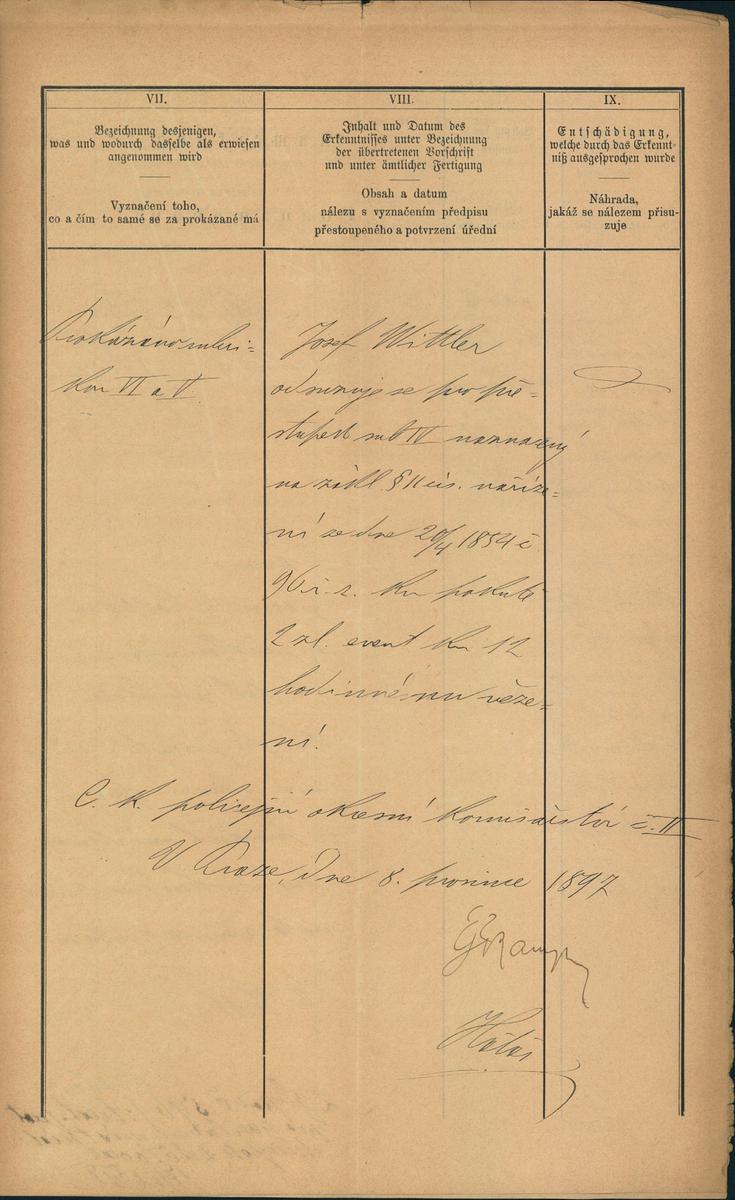 VII.
Bezeichnung desjenigen,
was und wodurch dasselbe als erwiesen
angenommen wird
Vyznačení toho,
co a čím to samé se za prokázané má
VIII.
Inhalt und Datum des
Erkenntnisses unter Bezeichnung
der übertretenen Vorschrift
und unter ämtlicher Fertigung
Obsah a datum
nálezu s vyznačením předpisu
přestoupeného a potvrzení úřední
IX.
Entschädigung,
welche durch das Erkennt-
niß ausgesprochen wurde
Náhrada,
jakáž se nálezem přisu-
zuje
Prokázáno rubri-
kou VI a V
Josef Wittler
odsuzuje se pro pře-
stupek sub IV naznačený
na zákl. § 11 cís. naříze-
ní ze dne 20/4 1854 č.
96 ř. z. ku pokutě
2 zl. event ku 12
hodinnému věze-
ní.
C. k. policejní okresní komisařství č. II
V Praze, dne 8. prosince 1897